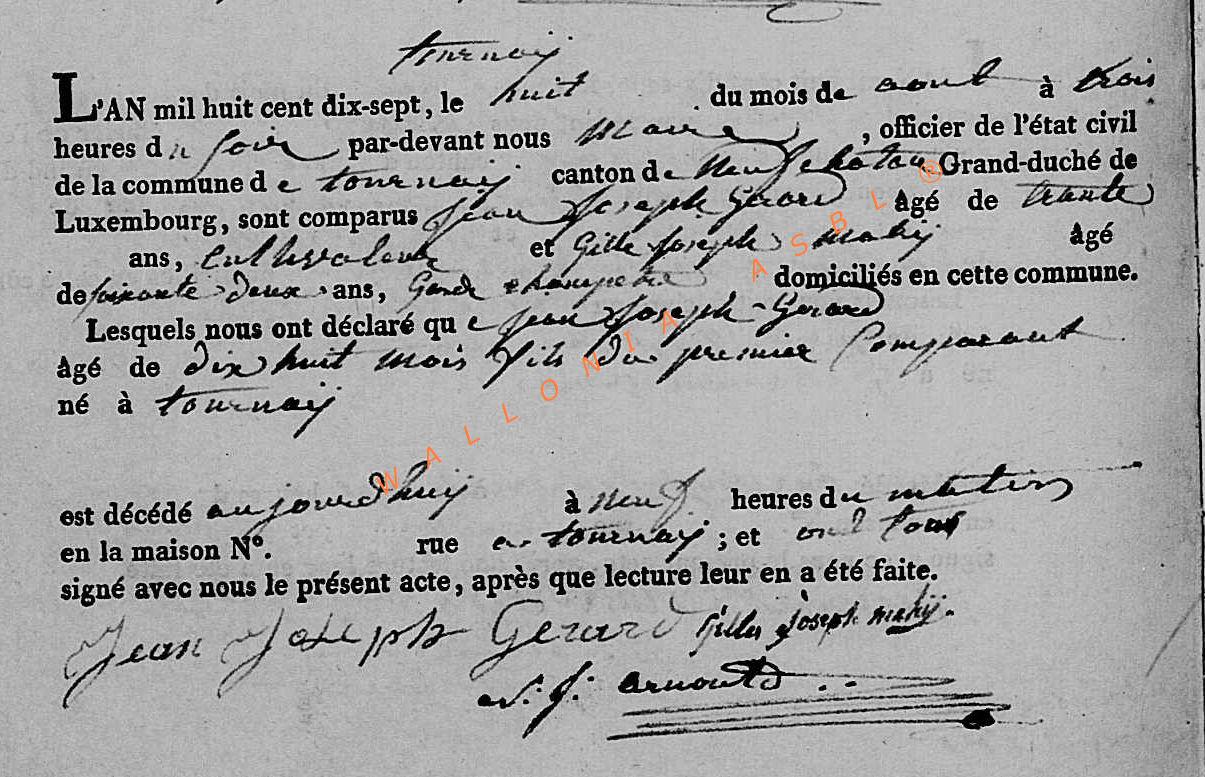 tournaij
L'AN mil huit cent dix-sept, le huit du mois de aout à trois
heures du soir par-devant nous maire , officier de l'état civil
de la commune de tournaij canton de Neufchâtau Grand-duché de
Luxembourg, sont comparus jean joseph Gerard âgé de trante
ans, cultivateur et Gille joseph mahij âgé
de soixante deux ans, Garde champetre domiciliés en cette commune.
Lesquels nous ont déclaré que jean joseph Gerard
âgé de dix huit mois fils du premier Comparant
né à tournaij
est décédé aujourdhuij à neuf heures du matin
en la maison N°. rue a tournaij ; et ont tous
signé avec nous le présent acte, après que lecture leur en a été faite.
Jean Joseph Gerard Gilles Joseph mahij.
j: arnould
WALLONIA ASBL ®